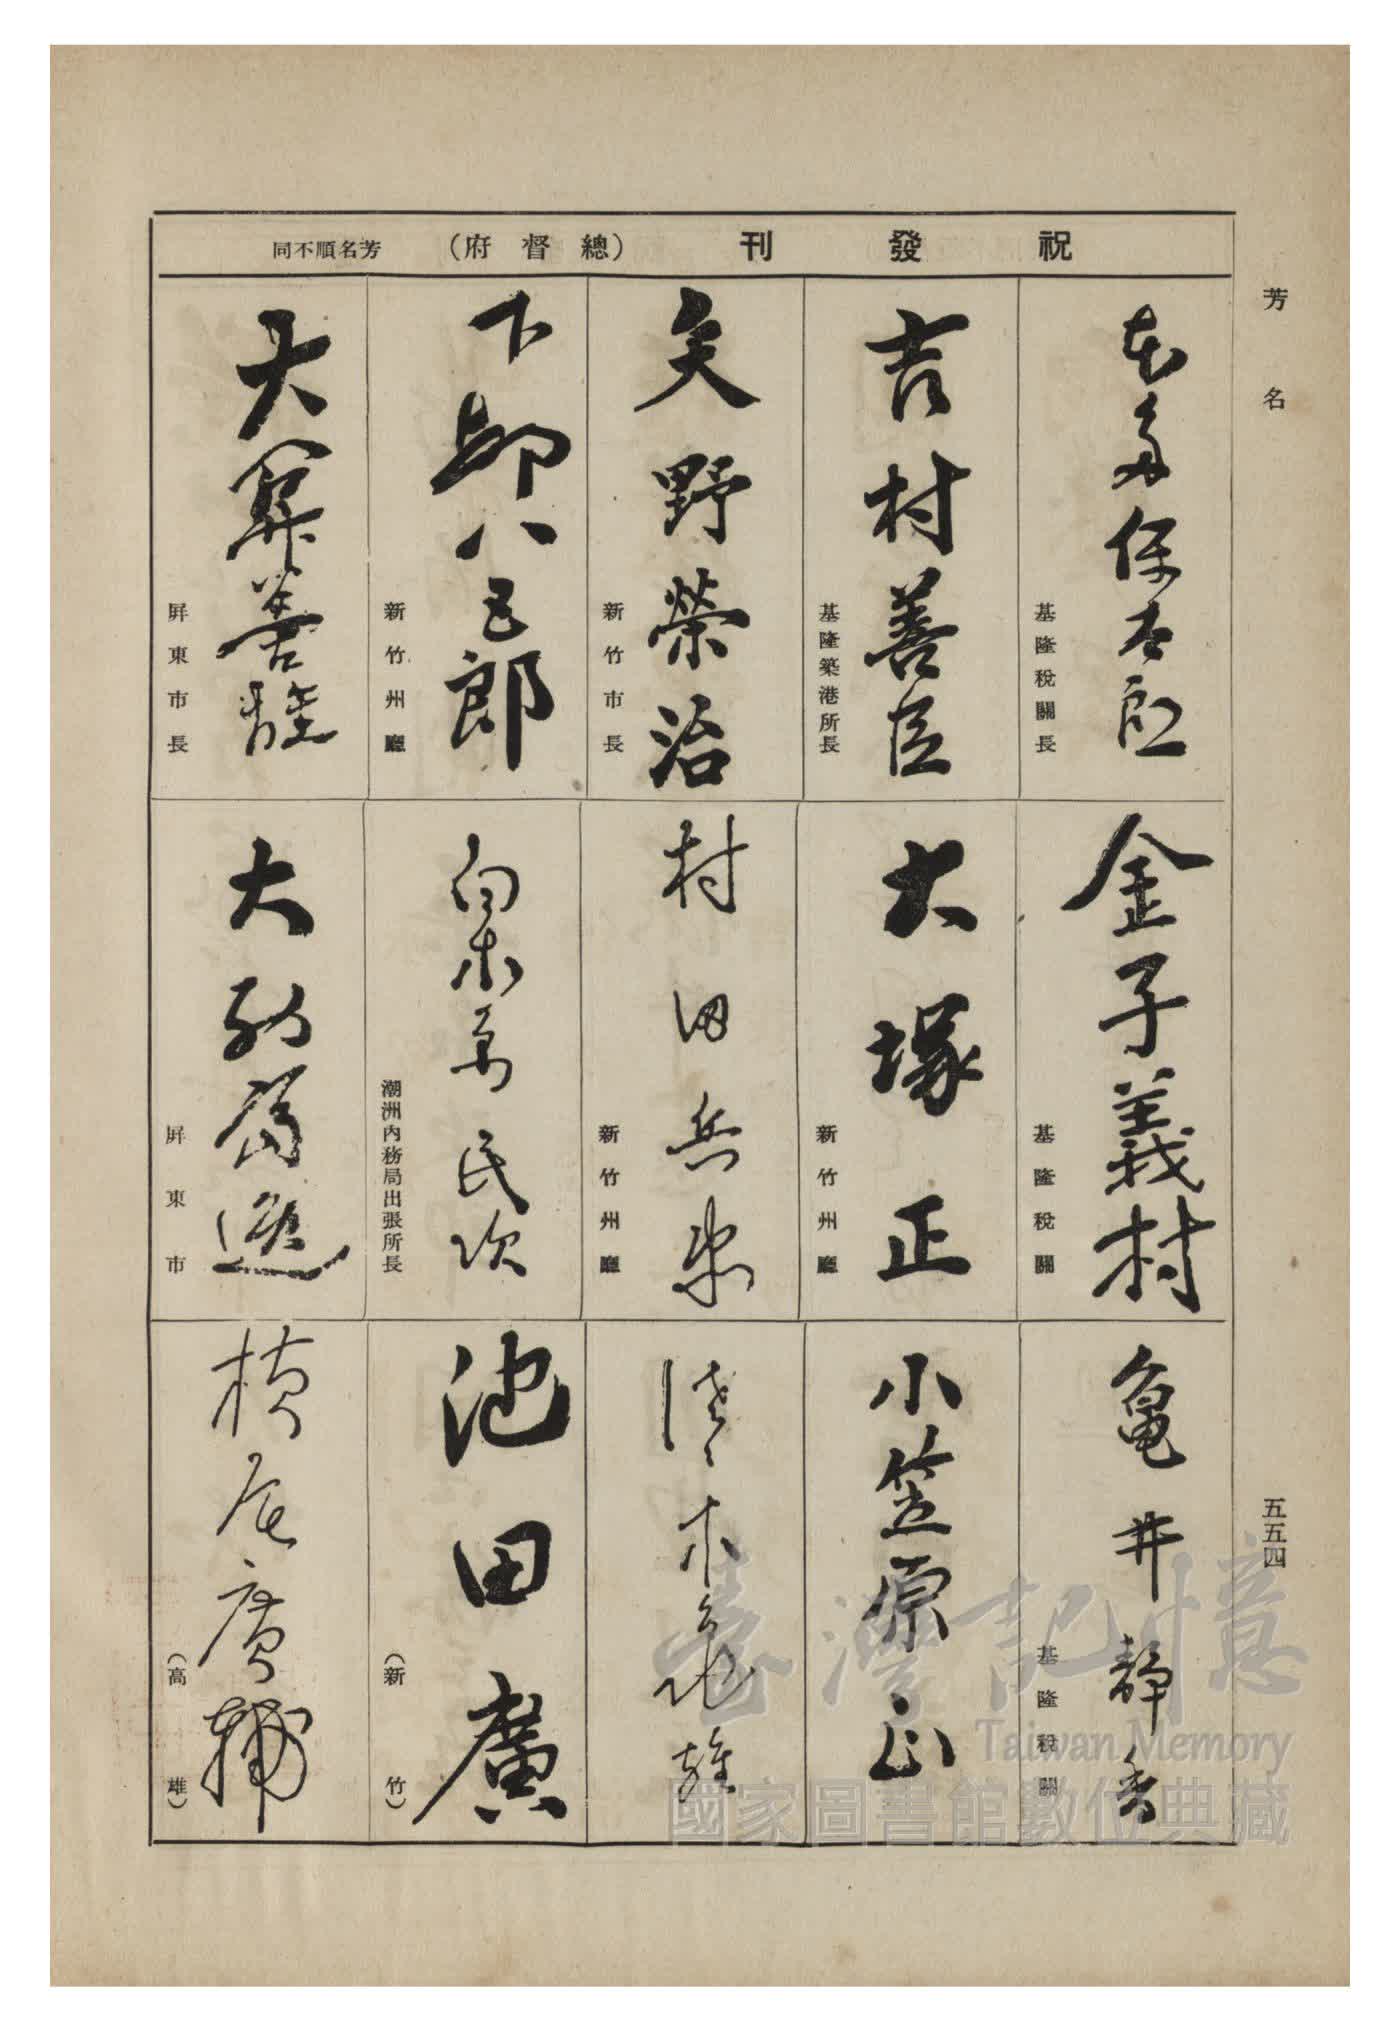 芳名
五五四
祝發刊 (總督府) 芳名順不同
本多保太郎
基隆稅關長
吉村善臣
基隆築港所長
矢野榮治
新竹市長
下郡八五郎
新竹州廳
大 善
屛東市長
金子義村
基隆稅關
大塚正
新竹州廳
村田兵
新竹州廳
白木 民次
潮洲內務局出張所長
大
屛東市
亀井靜
基隆稅關
小笠原正
木亀雄
池田廣
(新竹)
横尾廣輔
(高雄)
臺灣記憶
Taiwan Memory
國家圖書館數位典藏